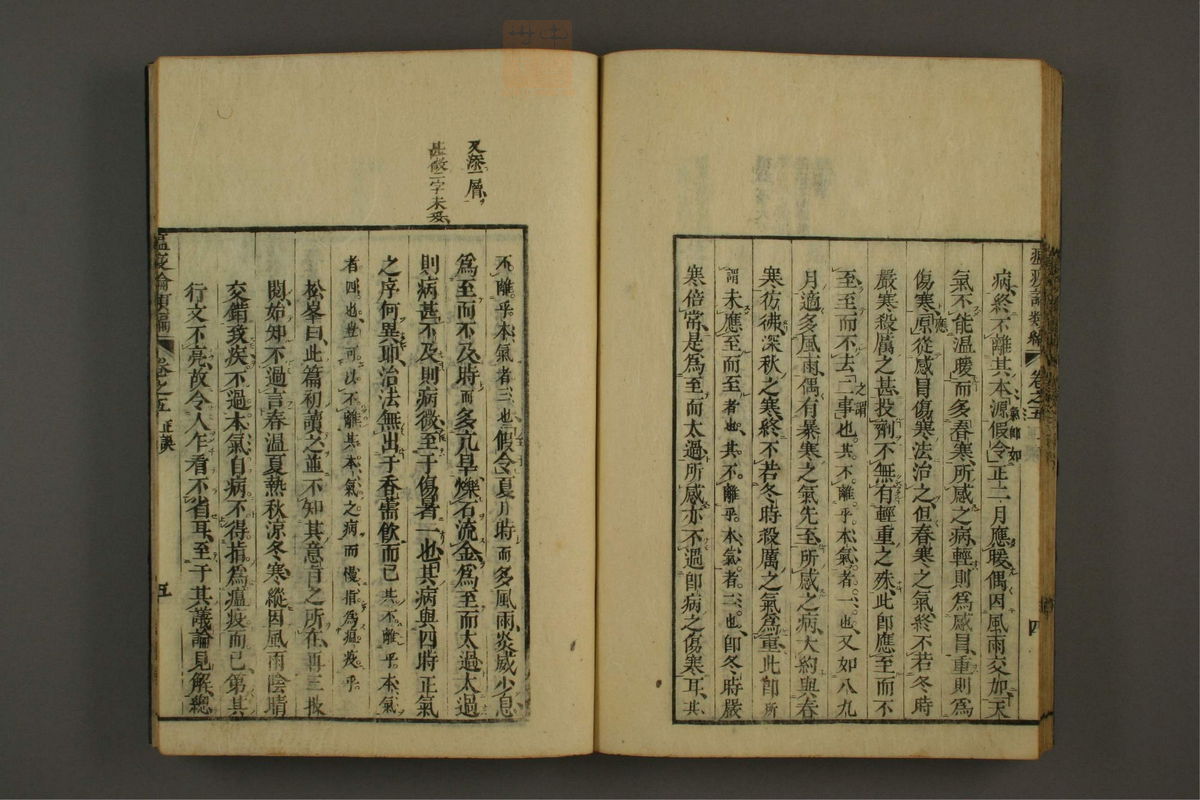 病終不離其本源假令氣即如正二月應暖偶因風雨交加天
氣不能温暖而多春寒所感之病輕則爲感冒重則爲
傷寒原從應感冒傷寒法治之但春寒之氣終不若冬時
嚴寒殺厲之甚投劑不無有輕重之殊此即應至而不
至至而不去之謂二事也其不離乎本氣者一也又如八九
月適多風雨偶有暴寒之氣先至所感之病大約與春
寒彷彿深秋之寒終不若冬時殺厲之氣爲重此即所
謂未應至而至者也其不離乎本氣者二也即冬時嚴
寒倍常是爲至而太過所感亦不過即病之傷寒耳其
瘟疫論類編 卷之五 四
又深一層
甚微二字未妥
不離乎本氣者三也假令夏月時而多風雨炎威少息
爲至而不及時而多亢旱爍石流金爲至而太過太過
則病甚不及則病微至于傷暑一也其病與四時正氣
之序何異耶治法無出于香薷飲而已其不離乎本氣
者四也豈可以不離其本氣之病而慢指爲瘟疫乎
松峯曰此篇初讀之並不知其意旨之所在再三披
閱始知不過言春温夏熱秋涼冬寒縱因風雨陰晴
交錯致疾不過本氣自病不得指爲瘟疫而已第其
行文不亮故令人乍看不省耳至于其議論見解總
瘟疫論類編 卷之五 正誤 五